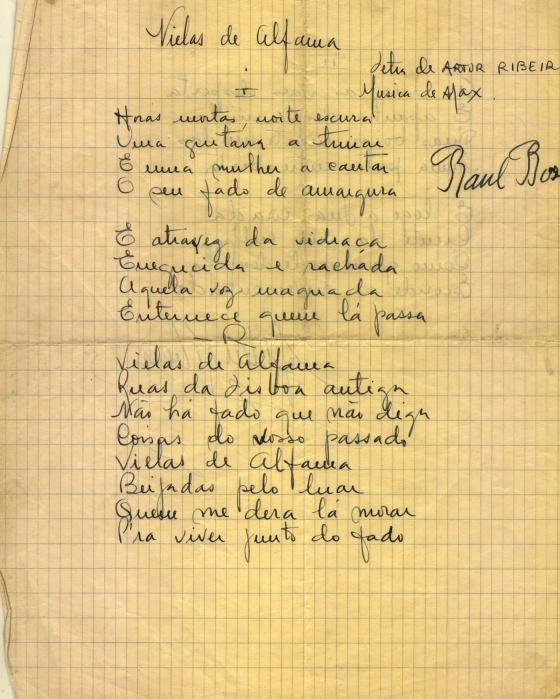 Vielas de Alfama
Letra de ARTUR RIBEIR
I
Musica de Max.
Horas mortas, noite escura
Uma guitarra a trinar
E uma mulher a cantar
O seu fado de amargura
Raul Bo
E atravez da vidraça
Enegrecida e rachada
Aquela voz maguada
Enternece quem lá passa
R
Vielas de Alfama
Ruas da Lisboa antiga
Não há fado que não diga
Coisas do vosso passado
Vielas de Alfama
Beijadas pelo luar
Quem me dera lá morar
P'ra viver junto do fado